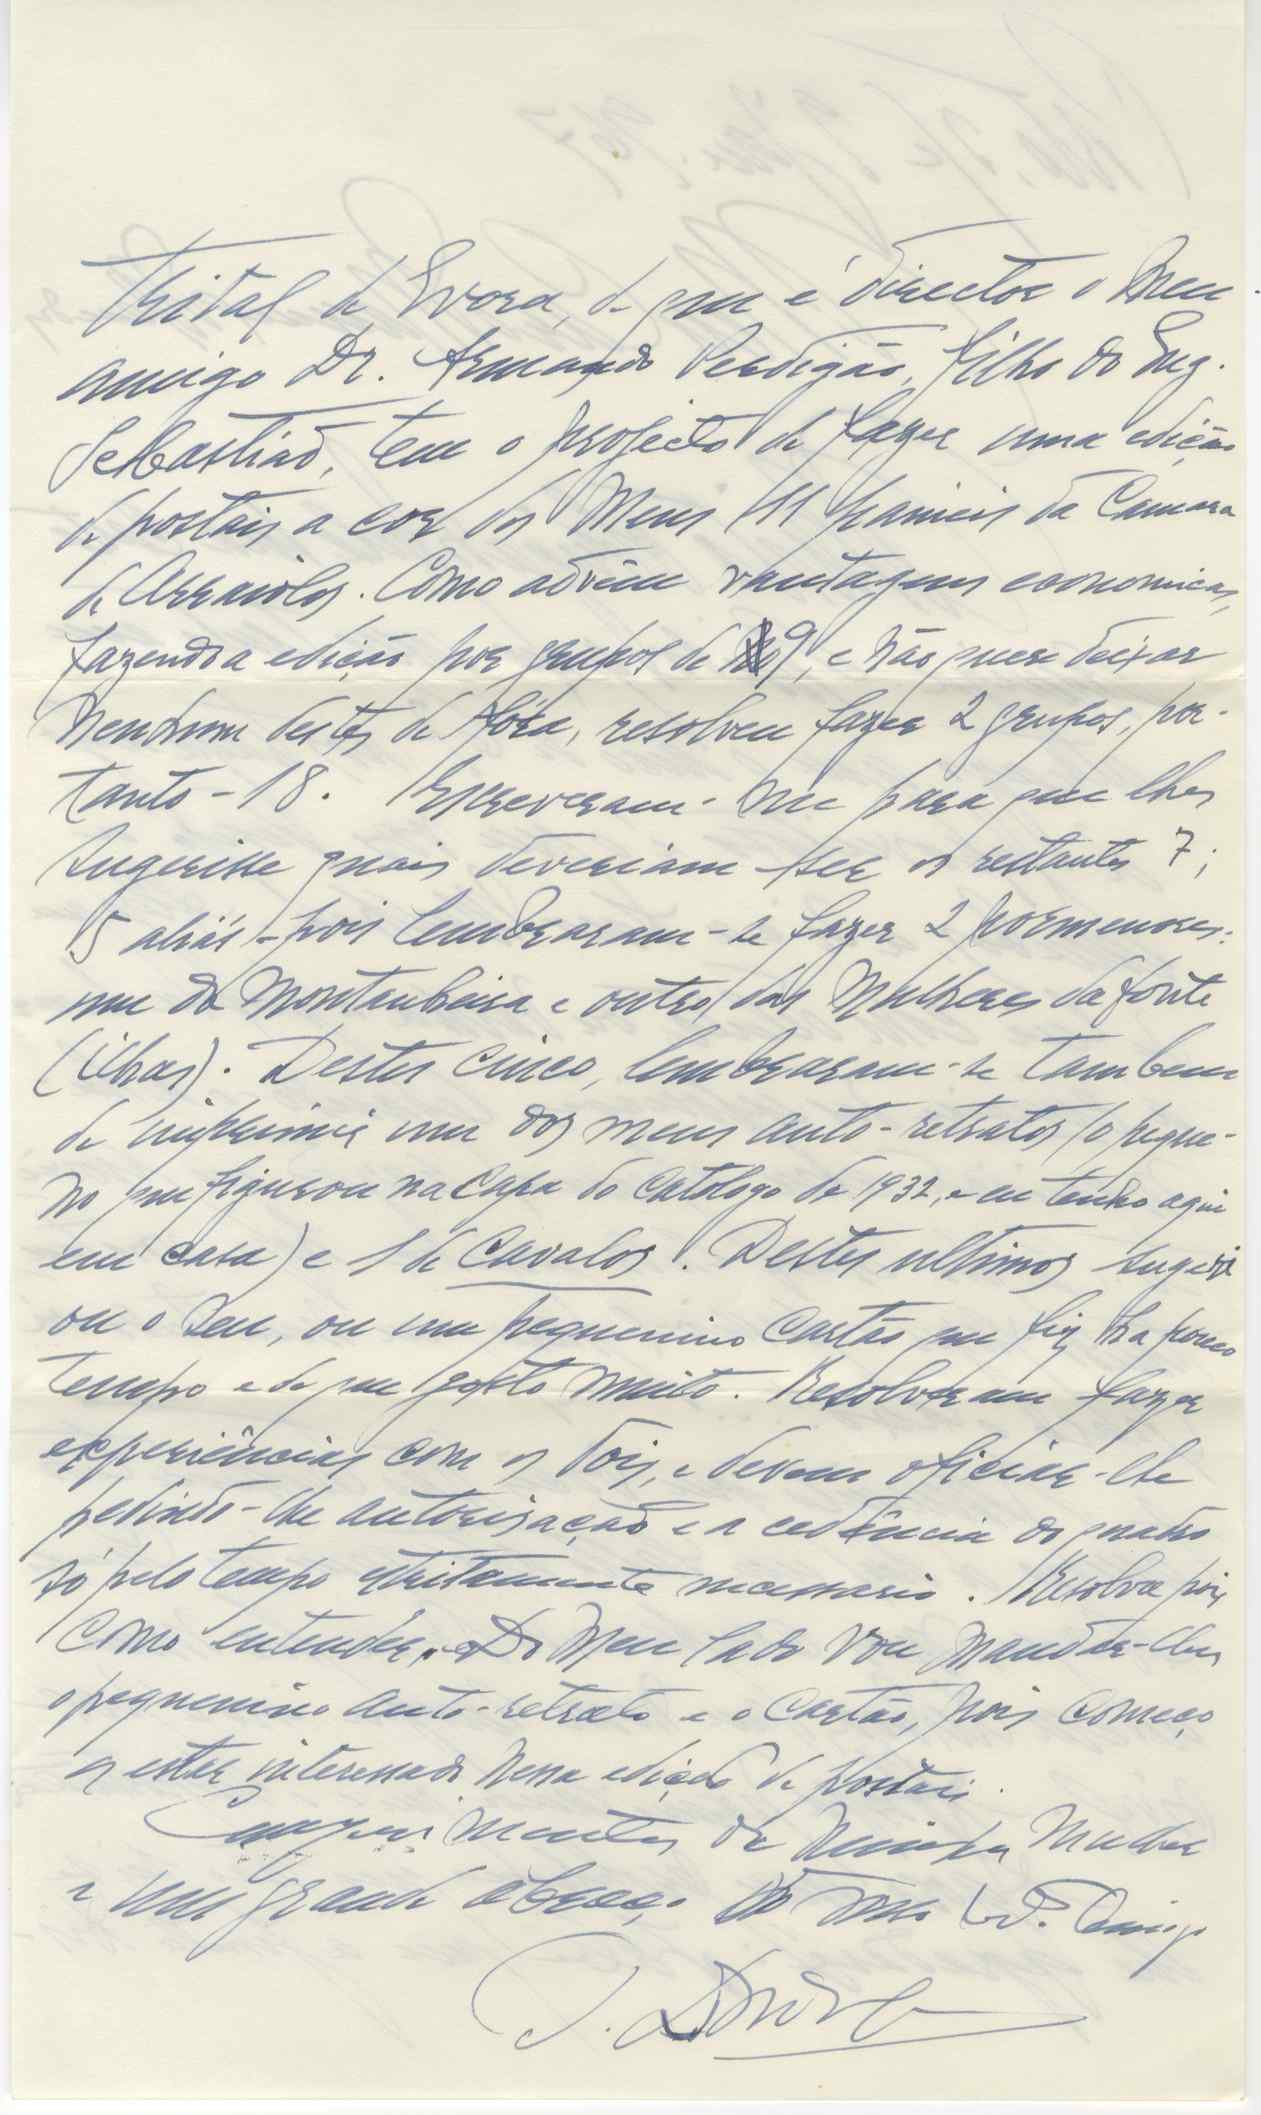 trital de Evora, de que é director o meu
amigo Dr. Armando Perdigão, filho do Eng.
Sebastião, tem o projecto de fazer uma edição
de postais a cor dos meus 11 paineis da Camara
de Arraiolos. Como advêm vantagens economicas,
fazendo a edição por grupos de 9, e não quer deixar
nenhum destes de fóra, resolveu fazer 2 grupos, por-
tanto - 18. Escreveram-me para que lhes
sugerisse quais deveriam ser os restantes 7;
5 aliás - pois lembraram-se fazer 2 pormenores:
um da Montanheira e outro das Mulheres da fonte
(Ilhas). Destes cinco, lembraram-se tambem
de imprimir um dos meus auto-retratos (o peque-
no que figurou na capa do catologo de 1932, e eu tenho aqui
em casa) e 1 de Cavalos. Destes ultimos sugeri
ou o seu, ou um pequenino cartão que fiz ha pouco
tempo e de que gosto muito. Resolveram fazer
experiências com os dois, e devem oficiar-lhe
pedindo-lhe autorisação e a cedência do quadro
só pelo tempo estritamente necessario. Resolva pois
como entender. Do meu lado vou mandar-lhes
o pequenino auto-retrato e o cartão, pois começo
a estar interessado nessa edição de postais.
Cumprimentos de minha Mulher
e um grande abraço do seu Amigo
D.